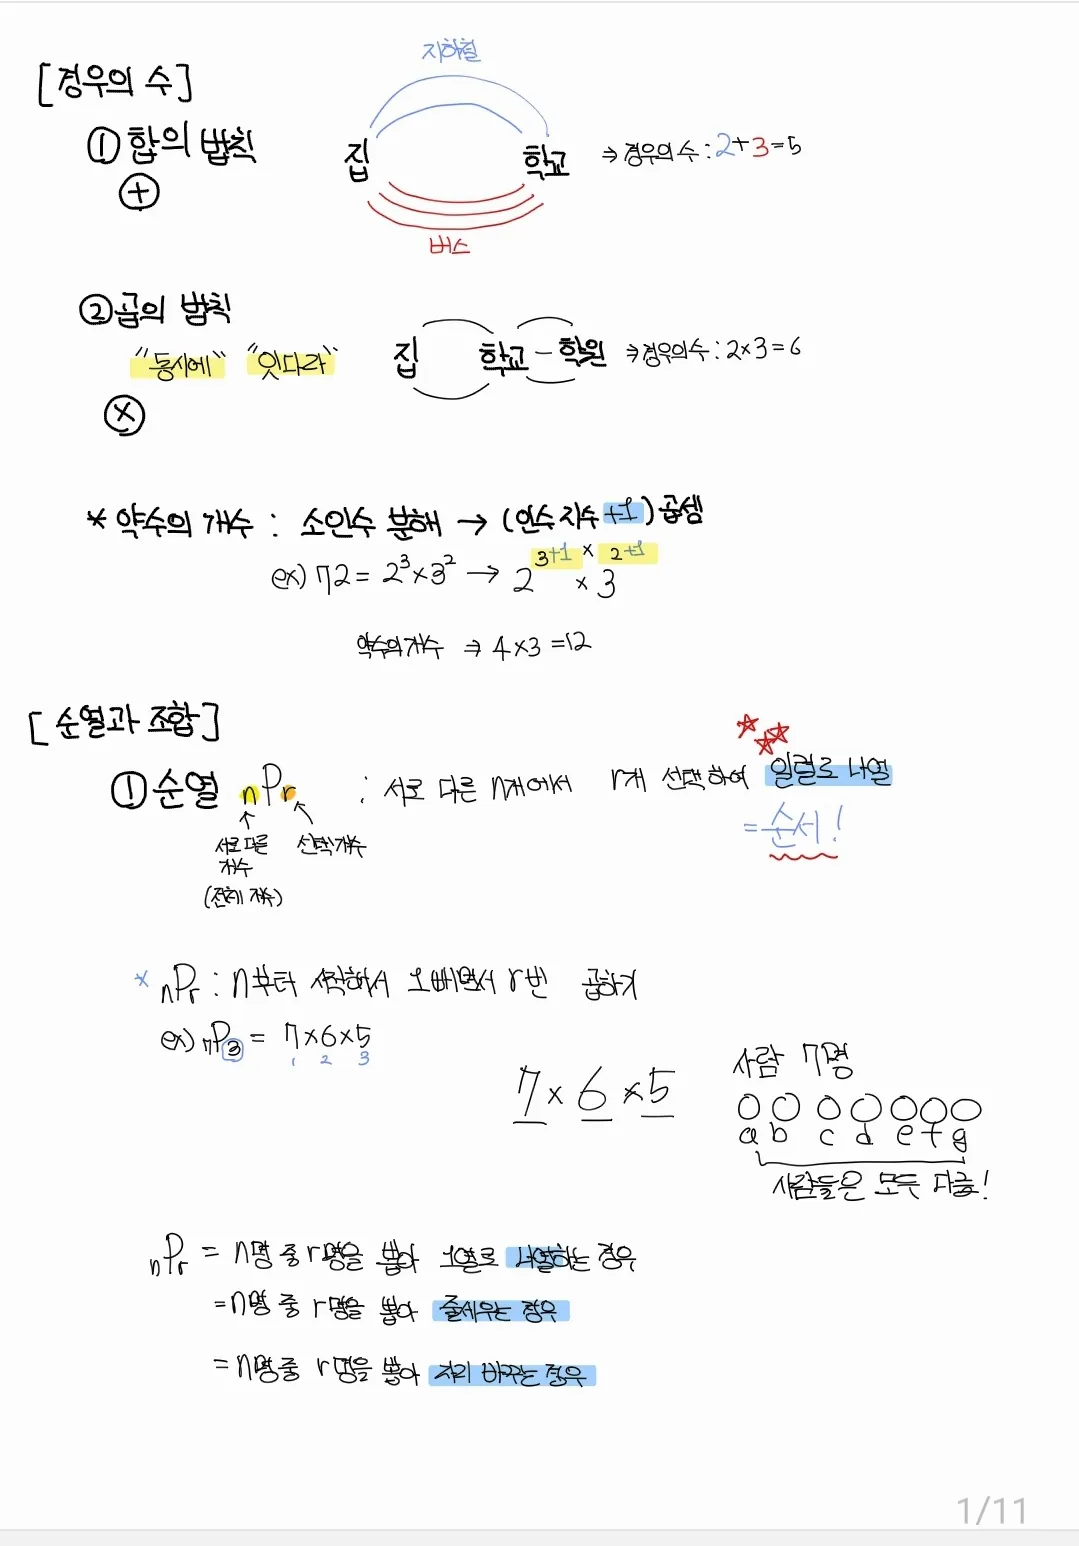 [경우의 수]
지하철
① 합의 법칙
집 학교 ⇒ 경우의 수 : 2+3=5
+
버스
② 곱의 법칙
"동시에" "잇따라"
집 학교 - 학원 ⇒ 경우의 수 : 2×3=6
×
* 약수의 개수 : 소인수 분해 → (인수 지수 +1) 곱셈
ex) 72 = 2³×3² → 2^(3+1) × 3^(2+1)
×
약수의 개수 ⇒ 4×3=12
[순열과 조합]
① 순열 nPr : 서로 다른 n개에서 r개 선택하여 일렬로 나열
= 순서!
서로 다른 개수 선택 개수
(전체 개수)
* nPr : n부터 시작해서 1 빼면서 r번 곱하기
ex) 7P3 = 7×6×5
1 2 3
7×6×5
사람 7명
a b c d e f g
사람들은 모두 다름!
nPr = n명 중 r명을 뽑아 1열로 나열하는 경우
= n명 중 r명을 뽑아 줄세우는 경우
= n명 중 r명을 뽑아 자리 바꾸는 경우
1/11